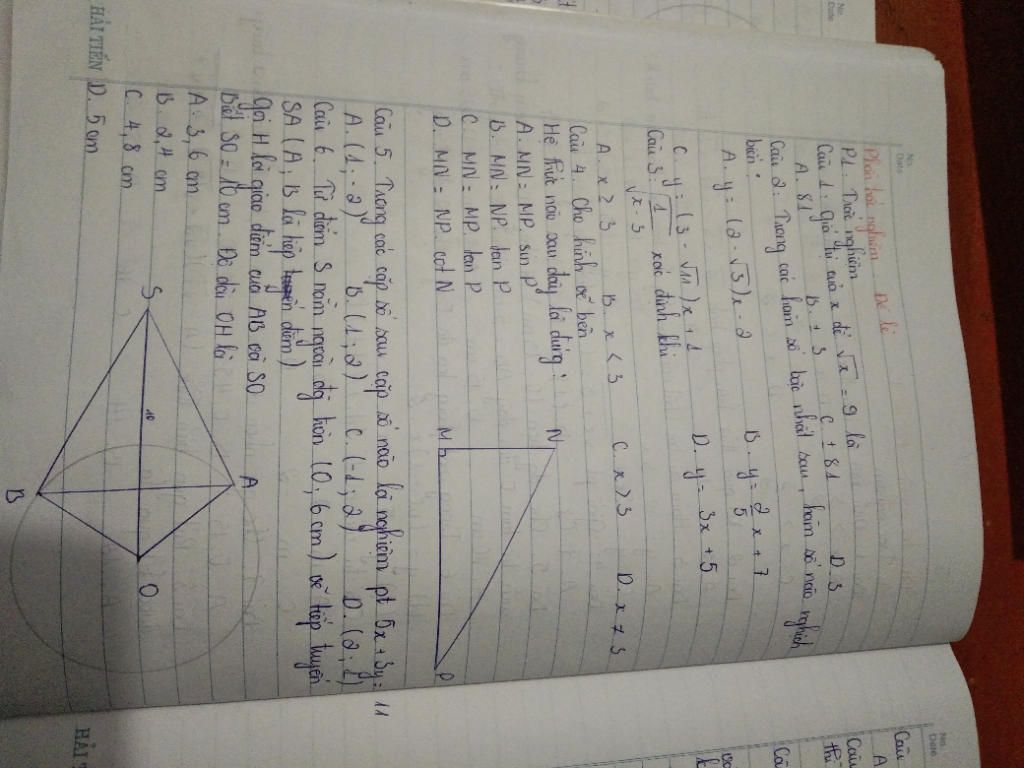 No.
Date
Phần trắc nghiệm Đề lẻ
P1. Trắc nghiệm
Câu 1: Giá trị của x để √x = 9 là
A. 81 B. ± 3 C ± 81 D. 3
Câu 2: Trong các hàm số bậc nhất sau, hàm số nào nghịch
biến:
A. y = (2 - √3)x - 2 B. y = 2/5 x + 7
C. y = (3 - √11)x + 1 D. y = 3x + 5
Câu 3: √1/√x - 3 xác định khi
A. x ≥ 3 B. x < 3 C. x > 3 D. x ≠ 3
Câu 4. Cho hình vẽ bên
Hệ thức nào sau đây là đúng:
A. MN = MP. sin P
B. MN = NP. tan P
C. MN = MP. tan P
D. MN = NP. cot N
N
M
P
Câu 5. Trong các cặp số sau cặp số nào là nghiệm pt 5x + 3y = 11
A. (1; -2) B. (1; 2) C. (-1; 2) D. (2; 1)
Câu 6. Từ điểm S nằm ngoài đg tròn (O; 6 cm) vẽ tiếp tuyến
SA (A, B là tiếp điểm)
gọi H là giao điểm của AB và SO
Biết SO = 10 cm. Độ dài OH là
A. 3,6 cm
B. 2,4 cm
C. 4,8 cm
D. 5 cm
S
10
A
O
B
HẢI TIẾN
No.
Date
Câu
A
Câu
thì
Câu
HẢI T
No.
Date